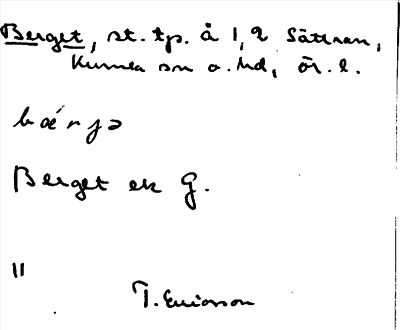 Berget, st. tp. å 1,2 Sättran,
Kumla sn o. hd, ör. l.
bæ´rjə
Berget ek G.
"
T. Ericsson